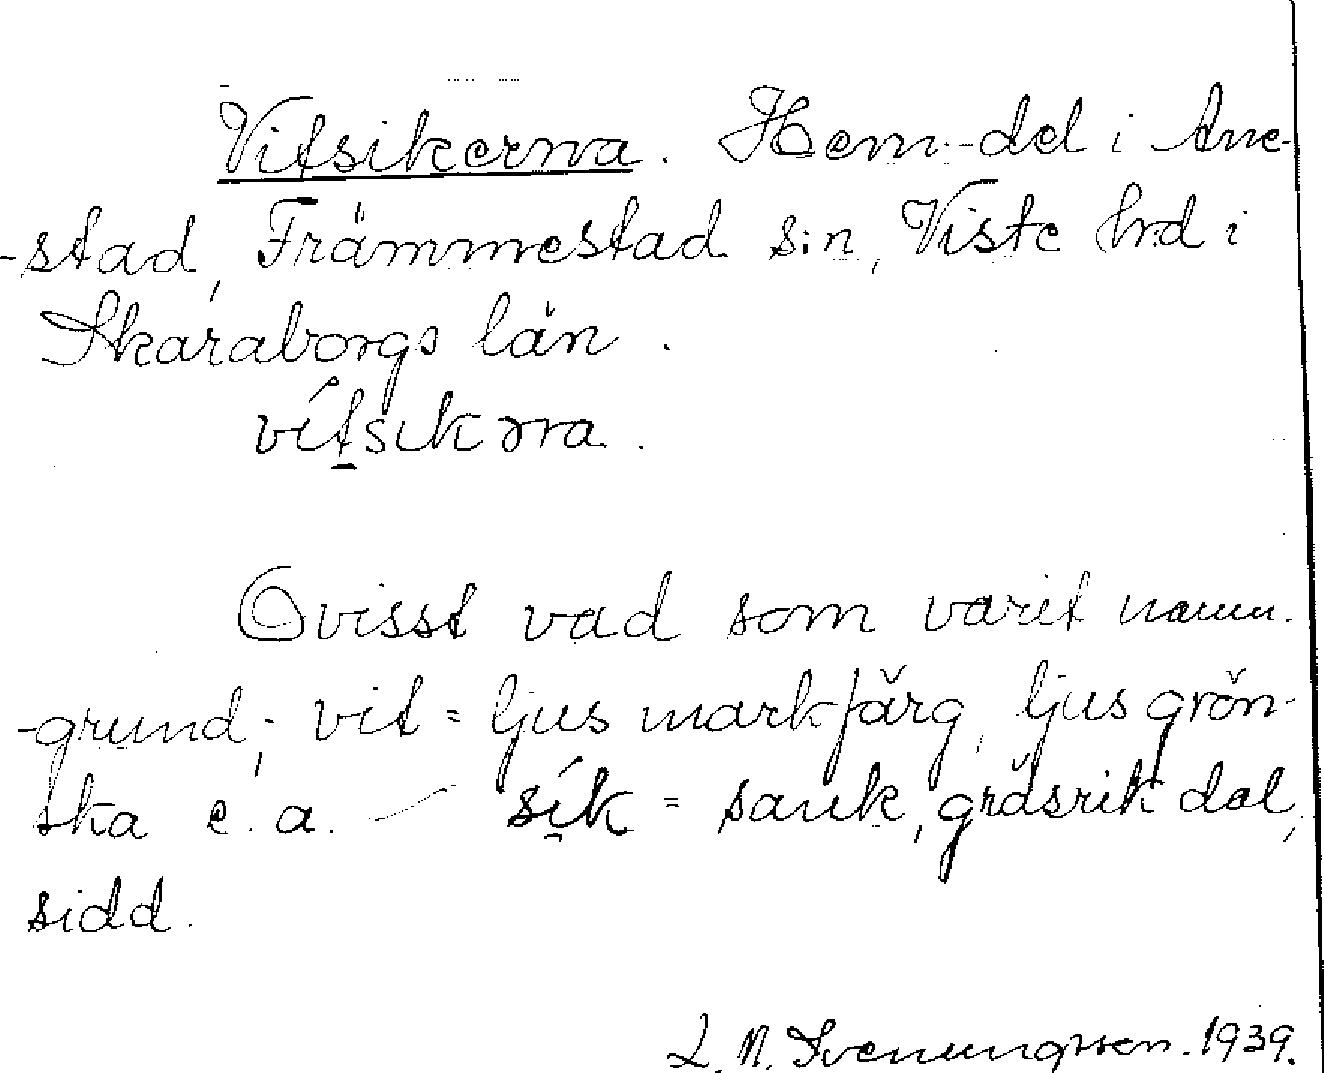 Vitsikerna. Hem-del i Ane-
-stad, Främmestad s:n, Viste hrd i
Skaraborgs län.
vítsikɔrna.
Ovisst vad som varit namn-
-grund; vit = ljus markfärg, ljus grön-
ska e. a. — sík = sank, gräsrik dal,
sidd.
L. N. Svenungsson. 1939.